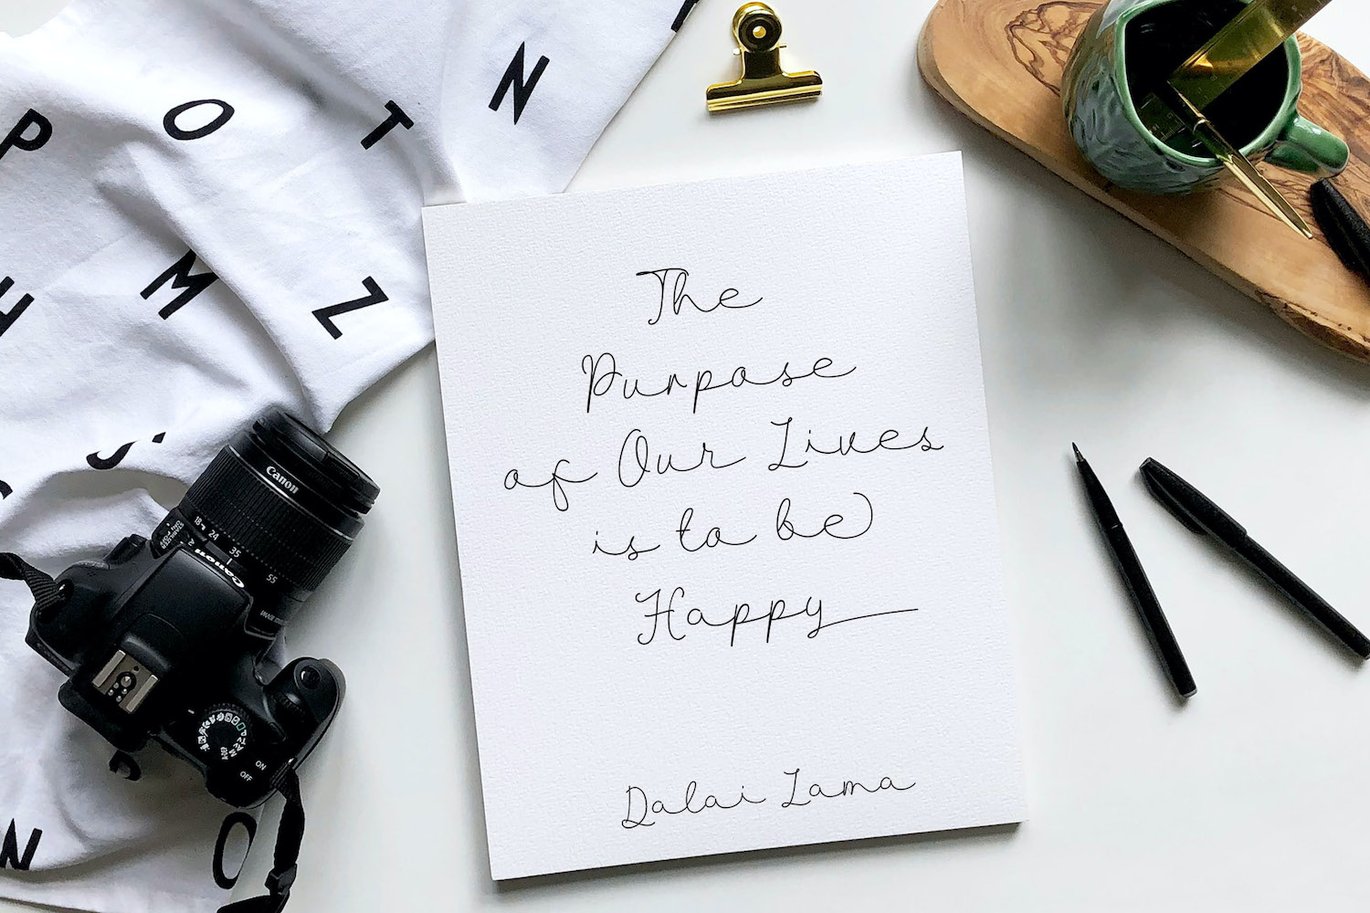 P O T N
H M Z
S
Canon
18 24 35 55
Canon
ON
OFF
N O
The
Purpose
of Our Lives
is to be
Happy
Dalai Lama